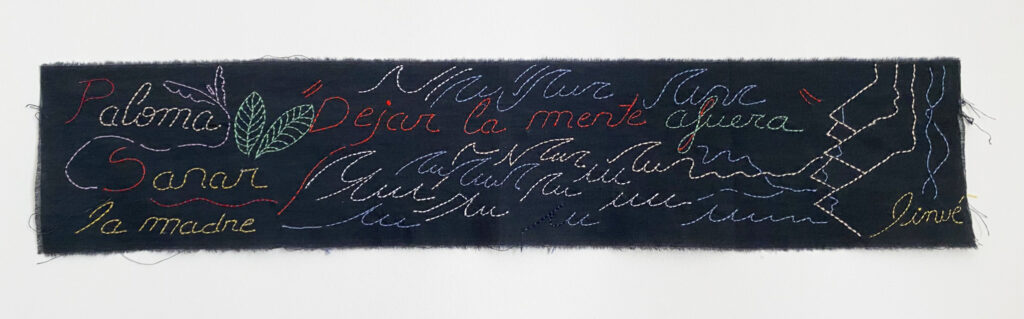 Paloma
Sanar
la madre
"Dejar la mente afuera"
linvé